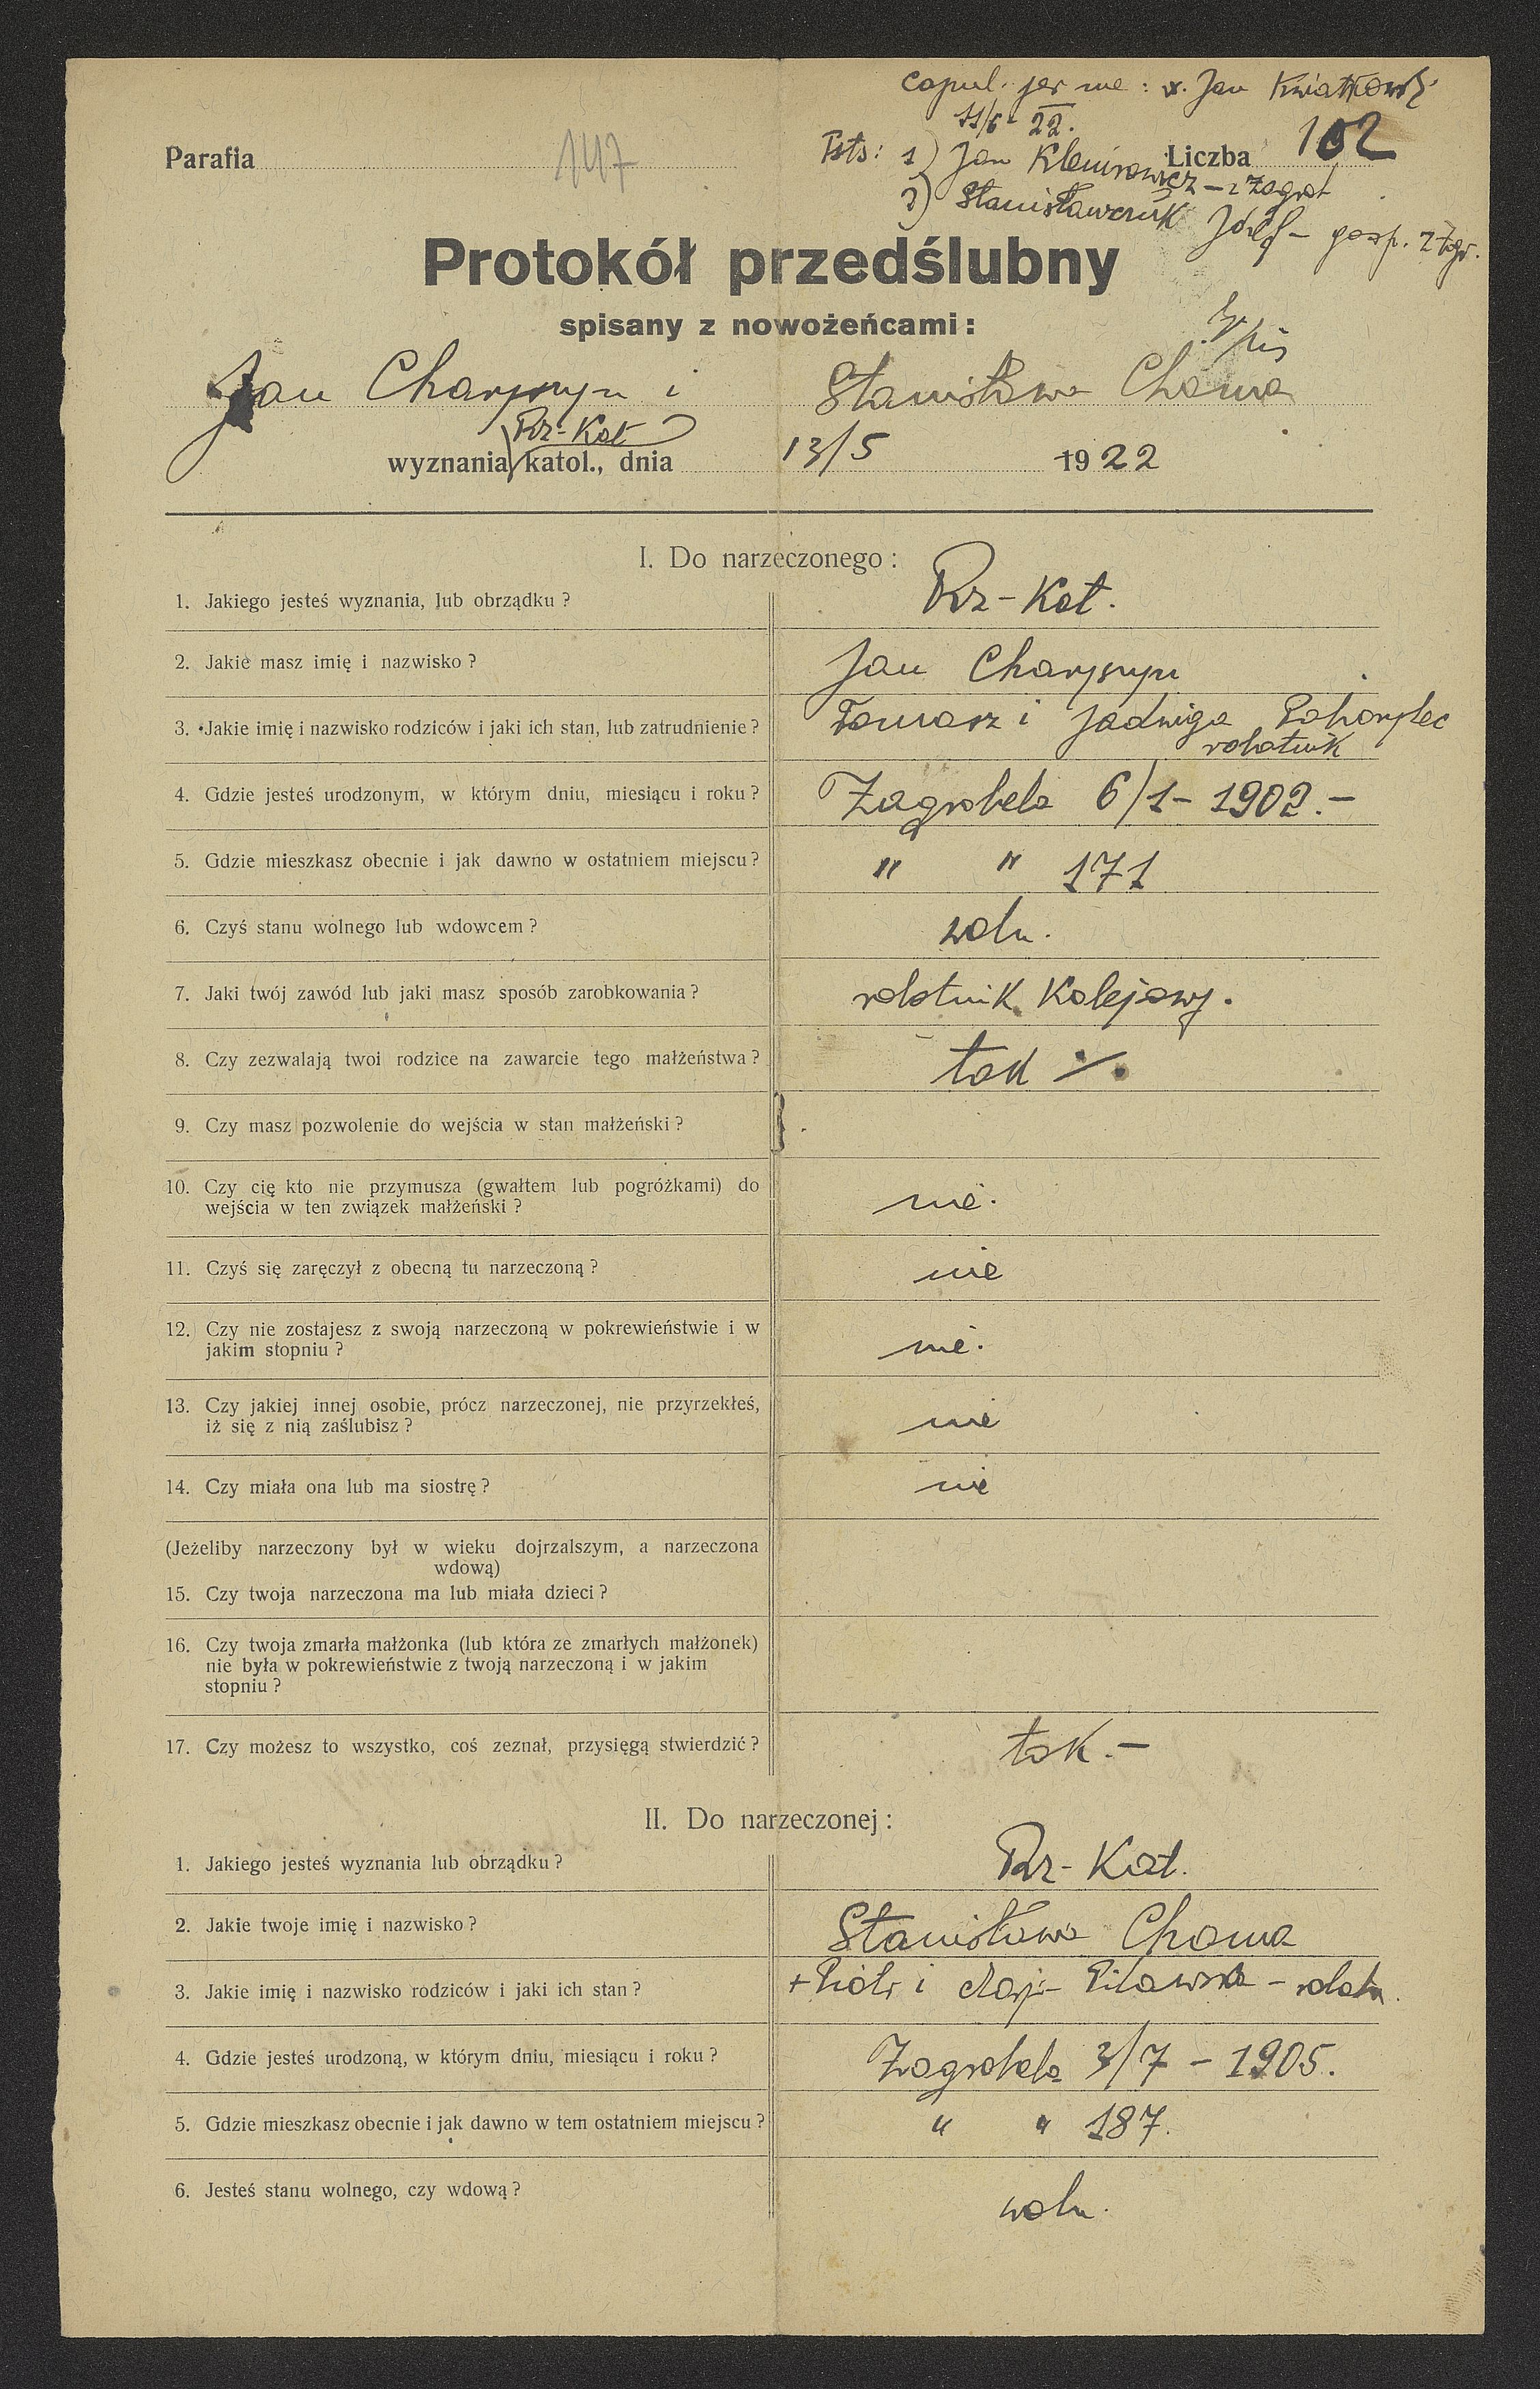 copul. per me: x. Jan Kwiatkowski
11/6 22.
Parafia 147 Tsts: 1) Jan Klemirowicz – z Zagrob Liczba 102
2) Stanisławczuk Józef – gosp. z Zagr.
Protokół przedślubny
spisany z nowożeńcami:
Jan Charyszyn i Stanisława Choma
Rz-Kat
wyznania katol., dnia 13/5 1922
I. Do narzeczonego:
1. Jakiego jesteś wyznania, lub obrządku? Rz-Kat.
2. Jakie masz imię i nazwisko? Jan Charyszyn
3. Jakie imię i nazwisko rodziców i jaki ich stan, lub zatrudnienie? Tomasz i Jadwiga Pohorylec
robotnik
4. Gdzie jesteś urodzonym, w którym dniu, miesiącu i roku? Zagrobela 6/1 – 1902.–
5. Gdzie mieszkasz obecnie i jak dawno w ostatniem miejscu? " " 171
6. Czyś stanu wolnego lub wdowcem? woln.
7. Jaki twój zawód lub jaki masz sposób zarobkowania? robotnik Kolejowy.
8. Czy zezwalają twoi rodzice na zawarcie tego małżeństwa? tak ⁒
9. Czy masz pozwolenie do wejścia w stan małżeński?
10. Czy cię kto nie przymusza (gwałtem lub pogróżkami) do
wejścia w ten związek małżeński? nie.
11. Czyś się zaręczył z obecną tu narzeczoną? nie
12. Czy nie zostajesz z swoją narzeczoną w pokrewieństwie i w
jakim stopniu? nie.
13. Czy jakiej innej osobie, prócz narzeczonej, nie przyrzekłeś,
iż się z nią zaślubisz? nie
14. Czy miała ona lub ma siostrę? nie
(Jeżeliby narzeczony był w wieku dojrzalszym, a narzeczona
wdową)
15. Czy twoja narzeczona ma lub miała dzieci?
16. Czy twoja zmarła małżonka (lub która ze zmarłych małżonek)
nie była w pokrewieństwie z twoją narzeczoną i w jakim
stopniu?
17. Czy możesz to wszystko, coś zeznał, przysięgą stwierdzić? tak.–
II. Do narzeczonej:
1. Jakiego jesteś wyznania lub obrządku? Rz-Kat.
2. Jakie twoje imię i nazwisko? Stanisława Choma
3. Jakie imię i nazwisko rodziców i jaki ich stan? + Piotr i Marja Pitawska – robotn.
4. Gdzie jesteś urodzoną, w którym dniu, miesiącu i roku? Zagrobela 3/7 – 1905.
5. Gdzie mieszkasz obecnie i jak dawno w tem ostatniem miejscu? " " 187.
6. Jesteś stanu wolnego, czy wdową? woln.